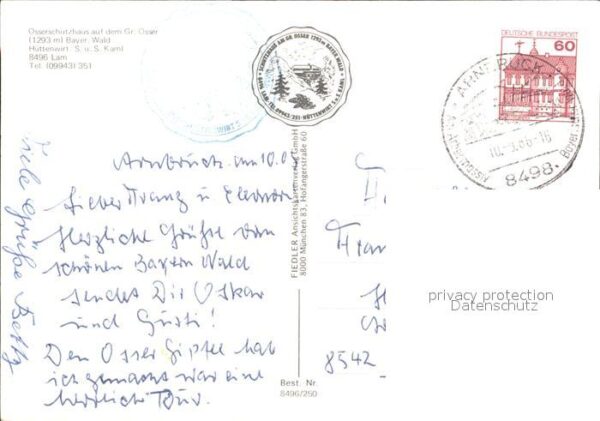 Osserschutzhaus auf dem Gr. Osser
(1293 m) Bayer. Wald
Hüttenwirt: S. u. S. Kaml
8496 Lam
Tel. (09943) 351
DEUTSCHE BUNDESPOST
60
ARNBRUCK
8498
Arnbruck, am 10.
Lieber Franz u
Herzliche Grüße vom
schönen Bayern Wald
sendet Dir Oskar
und Gusti!
Den Osser Gipfel hab
ich gemacht war eine
herrliche Tour.
Viele Grüße
FIEDLER Ansichtskartenverlag GmbH
8000 München 83, Hofangerstraße 60
8542
Best. Nr.
8496/250
privacy protection
Datenschutz